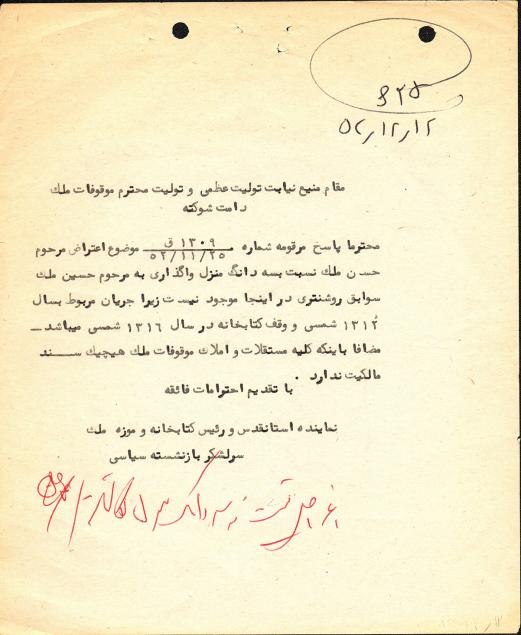 ۸۲۵
۵۲٫۱۲٫۱۲
مقام منیع نیابت تولیت عظمی و تولیت محترم موقوفات ملك
دامت شوکته
محترما پاسخ مرقومه شماره ۱۳۰۹ ق
۵۲/۱۱/۲۵ موضوع اعتراض مرحوم
حسن ملك نسبت بسه دانگ منزل واگذاری به مرحوم حسین ملك
سوابق روشنتری در اینجا موجود نیست زیرا جریان مربوط بسال
۱۳۱۲ شمسی و وقف کتابخانه در سال ۱۳۱۶ شمسی میباشد ــ
مضافا باینکه کلیه مستقلات و املاك موقوفات ملك هیچیك ســـند
مالکیت ندارد .
با تقدیم احترامات فائقه
نماینده استانقدس و رئیس کتابخانه و موزه ملك
سرلشکر بازنشسته سیاسی
سه دانگ منزل